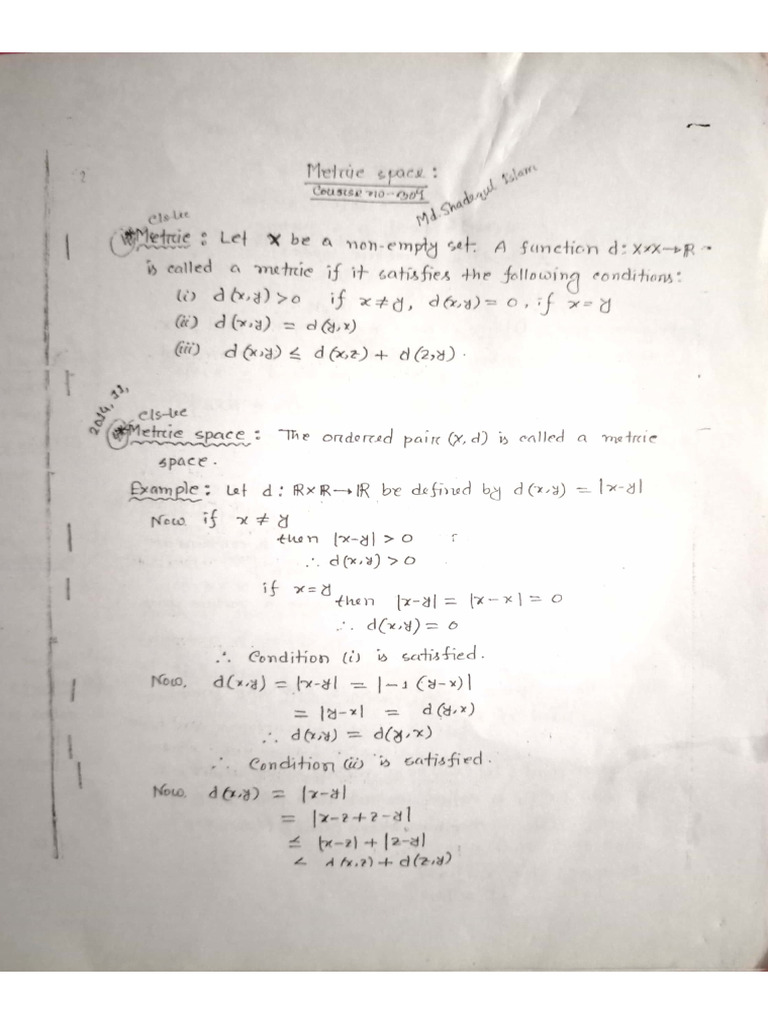 Metric space:
Course no-301
Md. Shadequl Islam
Metric: Let X be a non-empty set. A function d: X×X→ℝ
is called a metric if it satisfies the following conditions:
(i) d(x,y)>0 if x≠y, d(x,y)=0, if x=y
(ii) d(x,y) = d(y,x)
(iii) d(x,y) ≤ d(x,z) + d(z,y).
2014, 11,
Metric space: The ordered pair (X,d) is called a metric
space.
Example: Let d: ℝ×ℝ→ℝ be defined by d(x,y) = |x-y|
Now. if x ≠ y
then |x-y| > 0
∴ d(x,y) > 0
if x=y
then |x-y| = |x-x| = 0
∴ d(x,y) = 0
∴ Condition (i) is satisfied.
Now, d(x,y) = |x-y| = |-1 (y-x)|
= |y-x| = d(y,x)
∴ d(x,y) = d(y,x)
∴ Condition (ii) is satisfied.
Now, d(x,y) = |x-y|
= |x-z+z-y|
≤ |x-z| + |z-y|
≤ d(x,z) + d(z,y)